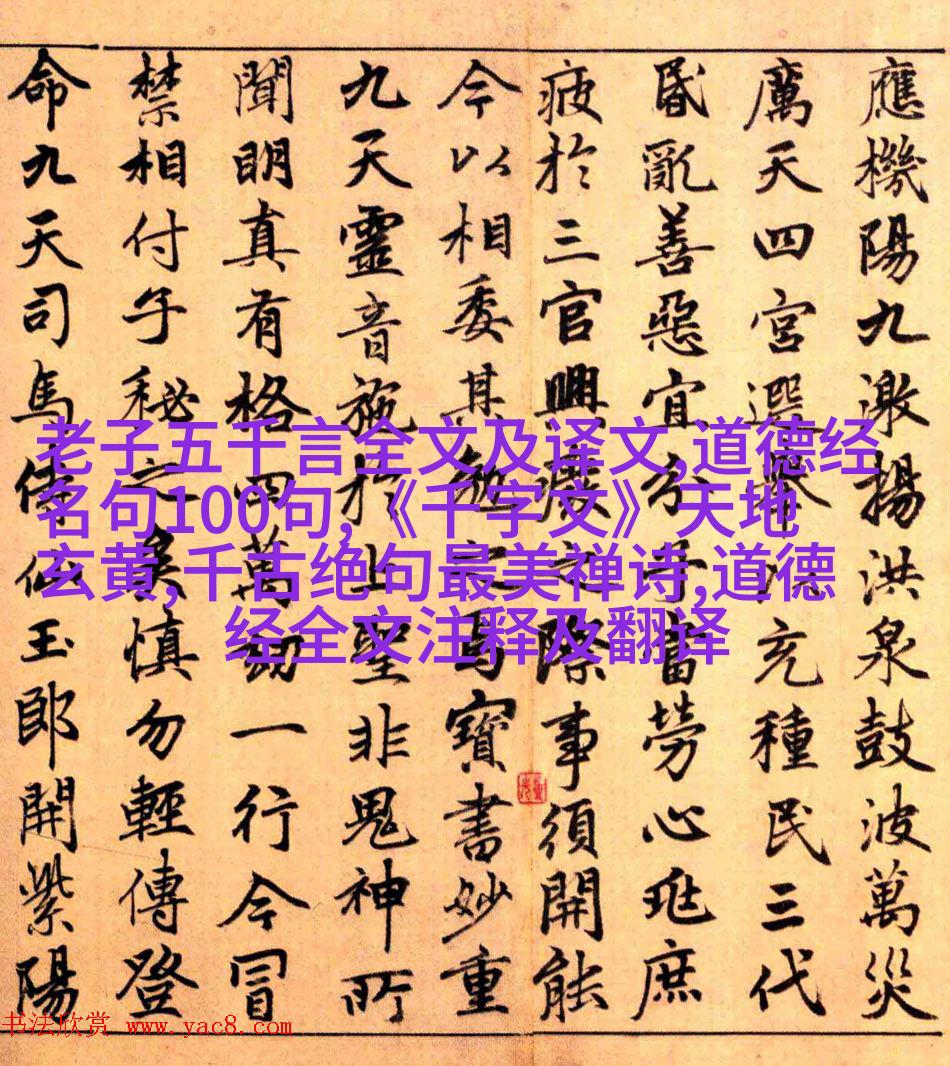 應機陽九激揚洪泉鼓波萬災
厲天四宮選充種民三代
昏亂善惡宜分子當勞心兆庶
疲於三官興廢之際事須開能
今以相委其勉之焉寶書妙重
九天靈音施於上聖非鬼神所
聞明真有格四萬劫一行今冒
禁相付子秘之矣慎勿輕傳登
命九天司馬侍仙玉郎開紫陽
老子五千言全文及译文,道德经
名句100句,《千字文》天地
玄黄,千古绝句最美禅诗,道德
经全文注释及翻译
书法欣赏 www.yac8.com